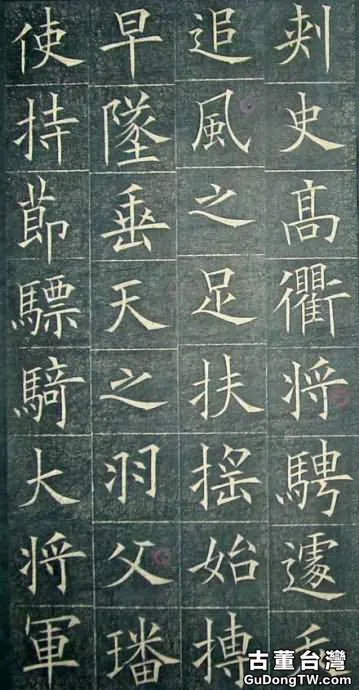 刺史高衢将騁遽夭
追風之足扶搖始摶
早墜垂天之羽父璠
使持節驃騎大将軍
古董台灣
GuDongTW.com